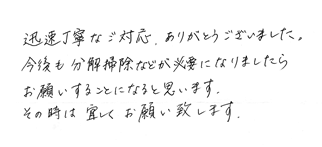 迅速丁寧なご対応、ありがとうございました。
今後も分解掃除などが必要になりましたら
お願いすることになると思います。
その時は宜しくお願い致します。